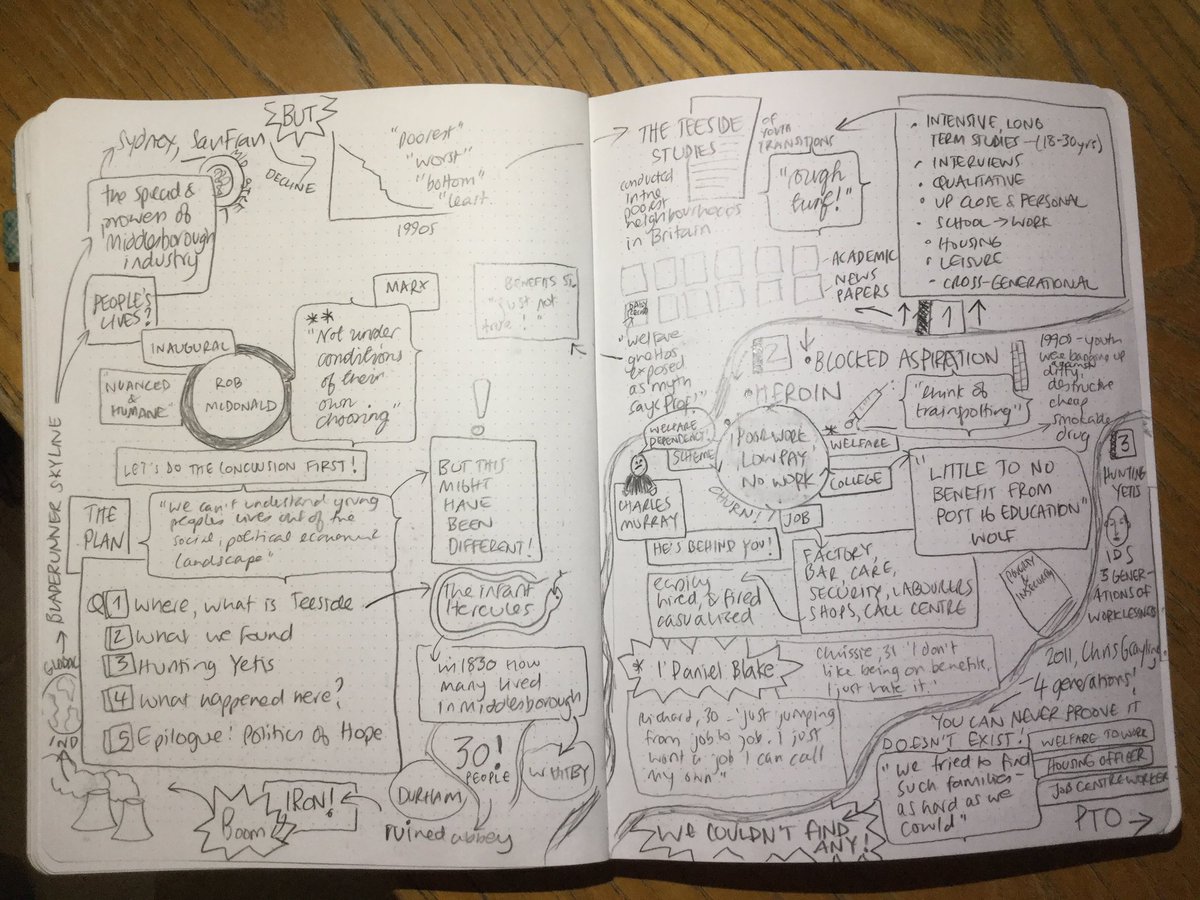 BUT
Sydney, SanFran
DECLINE
"Poorest"
"worst"
"bottom"
"least.
1990s
the spread &
prowess of
Middlesborough
industry
PEOPLE'S
LIVES?
MARX
**
"Not under
conditions
of their
own
choosing"
BENEFITS ST
"just not
true!"
INAUGURAL
"NUANCED
& HUMANE"
ROB
MCDONALD
BLADERUNNER SKYLINE
LET'S DO THE CONCLUSION FIRST!
THE
PLAN
"We can't understand young
peoples lives out of the
social, political economic
landscape"
!
BUT THIS
MIGHT
HAVE
BEEN
DIFFERENT!
Q 1 Where, what is Teeside
2 What we found
3 Hunting Yetis
4 What happened here?
5 Epilogue! Politics of Hope
The infant
Hercules
In 1830 how
many lived
in Middlesborough
30!
PEOPLE
DURHAM
WHITBY
ruined abbey
GLOBAL
IRON!
Boom
THE TEESIDE
STUDIES
OF
YOUTH
TRANSITIONS
conducted
in the
poorest
neighbourhoods
in Britain
"rough
turf!"
• INTENSIVE, LONG
TERM STUDIES - (18-30yrs)
• INTERVIEWS
• QUALITATIVE
• UP CLOSE & PERSONAL
• SCHOOL → WORK
• HOUSING
• LEISURE
- CROSS-GENERATIONAL
ACADEMIC
NEWS
PAPERS
1
"welfare
ghettos
exposed
as myth
says Prof!"
2
• BLOCKED ASPIRATION
• HEROIN
"think of
trainspotting"
1990s - youth
were banging up
against
dirty,
destructive
cheap
smokable
drug
WELFARE
DEPENDENCY!
SCHEME
POOR WORK,
LOW PAY
NO WORK
CHURN!
*
WELFARE
COLLEGE
JOB
CHARLES
MURRAY
HE'S BEHIND YOU!
"LITTLE TO NO
BENEFIT FROM
POST 16 EDUCATION"
WOLF
3
HUNTING
YETIS
IDS
3 GENER-
ATIONS OF
WORKLESSNESS
FACTORY,
BAR, CARE,
SECURITY, LABOURERS
SHOPS, CALL CENTRE
easily
hired, & fired
casualised
POVERTY &
INSECURITY
* I' Daniel Blake
Chrissie, 31 'I don't
like being on benefits,
I just hate it.'
Richard, 30 - 'just jumping
from job to job. I just
want a job I can call
my own"
2011, Chris Grayling
4 generations!
YOU CAN NEVER PROOVE IT
DOESN'T EXIST!
"we tried to find
such families -
as hard as we
could"
WELFARE TO WORK
HOUSING OFFICER
JOB CENTRE WORKER
WE COULDN'T FIND
ANY!
PTO →